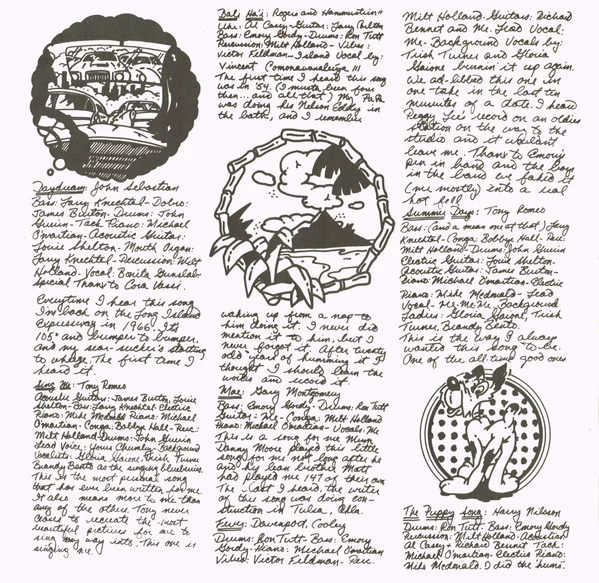 Daydream: John Sebastian
Bass: Larry Knechtel - Dobro:
James Burton - Drums: John
Guerin - Tack Piano: Michael
Omartian - Acoustic Guitar:
Louie Shelton - Mouth Organ:
Larry Knechtel - Percussion: Milt
Holland - Vocal:
Special Thanx to Cora Vassi.
Everytime I hear this song
I'm back on the Long Island
Expressway in 1966. Its
105° and bumper to bumper.
And my sear-sucker's starting
to The first time I
heard it.
Sing Me: Tony Romeo
Acoustic Guitars: James Burton, Louie
Shelton - Bass: Larry Knechtel - Electric
Piano: Mike McDonald - Piano: Michael
Omartian - Conga: Bobbye Hall - Perc:
Milt Holland - Drums: John Guerin
Lead Voice: Yours Chumley - Background
Vocalists: Gloria, Trish Turner
Brandy as the singing bluebirds.
This is the most personal song
that has ever been written for me.
It also means more to me than
any of the others. Tony never
ceases to recreate the most
beautiful pictures for me to
sing my way into. This one is
singing me.
Bali Ha'i: Rogers and Hammerstein
Uke: Al Casey - Guitar: Larry Carlton
Bass: Emory Gordy - Drums: Ron Tutt
Percussion: Milt Holland - Vibes:
Victor Feldman - Island Vocal by:
Vincent III
The first time I heard this song
was in '54. (I musta been four
then... and all that) My PaPa
was doing his Nelson Eddy in
the bath, and I remember
waking up from a nap to
him doing it. I never did
mention it to him, but I
never forgot it. After twenty
odd years of humming it I
thought I should learn the
words and record it.
Mae: Gary Montgomery
Bass: Emory Gordy - Drums: Ron Tutt
Guitars: Me - Conga: Milt Holland
Piano: Michael Omartian - Vocals: Me
This is a song for me Mum
Danny Moore played this little
song for me not long after he
and his lean brother Matt
had played me 147 of their own
The last I heard the writer
of this song was doing con-
struction in Tulsa, Okla.
Fever: Davenport, Cooley
Drums: Ron Tutt - Bass: Emory
Gordy - Piano: Michael Omartian
Vibes: Victor Feldman - Perc:
Milt Holland - Guitars: Richard
Bennet and Me. Lead Vocal:
Me - Background Vocals by:
Trish Turner and Gloria
burnin' it up again.
We ad-libbed this one in
one take in the last ten
minutes of a date. I heard
Peggy Lee's record on an oldies
station on the way to the
studio and it wouldn't
leave me. Thanx to Emory's
pen in hand and the boys
in the band we faked it
(me mostly) into a real
hot hell
Summer Days: Tony Romeo
Bass: (and a mean one at that) Larry
Knechtel - Conga: Bobbye Hall - Perc:
Milt Holland - Drums: John Guerin
Electric Guitar: Louie Shelton -
Acoustic Guitar: James Burton -
Piano: Michael Omartian - Electric
Piano: Mike McDonald - Lead
Vocal - Me-Me-Me - Background
Ladies: Gloria, Trish
Turner, Brandy
This is the way I always
wanted this song to be.
One of the all-time good ones
The Puppy Song: Harry Nilsson
Drums: Ron Tutt - Bass: Emory Gordy
Percussion: Milt Holland - Acoustics:
Al Casey & Richard Bennett Tack:
Michael Omartian - Electric Piano:
Mike McDonald. I did the 'hums'.